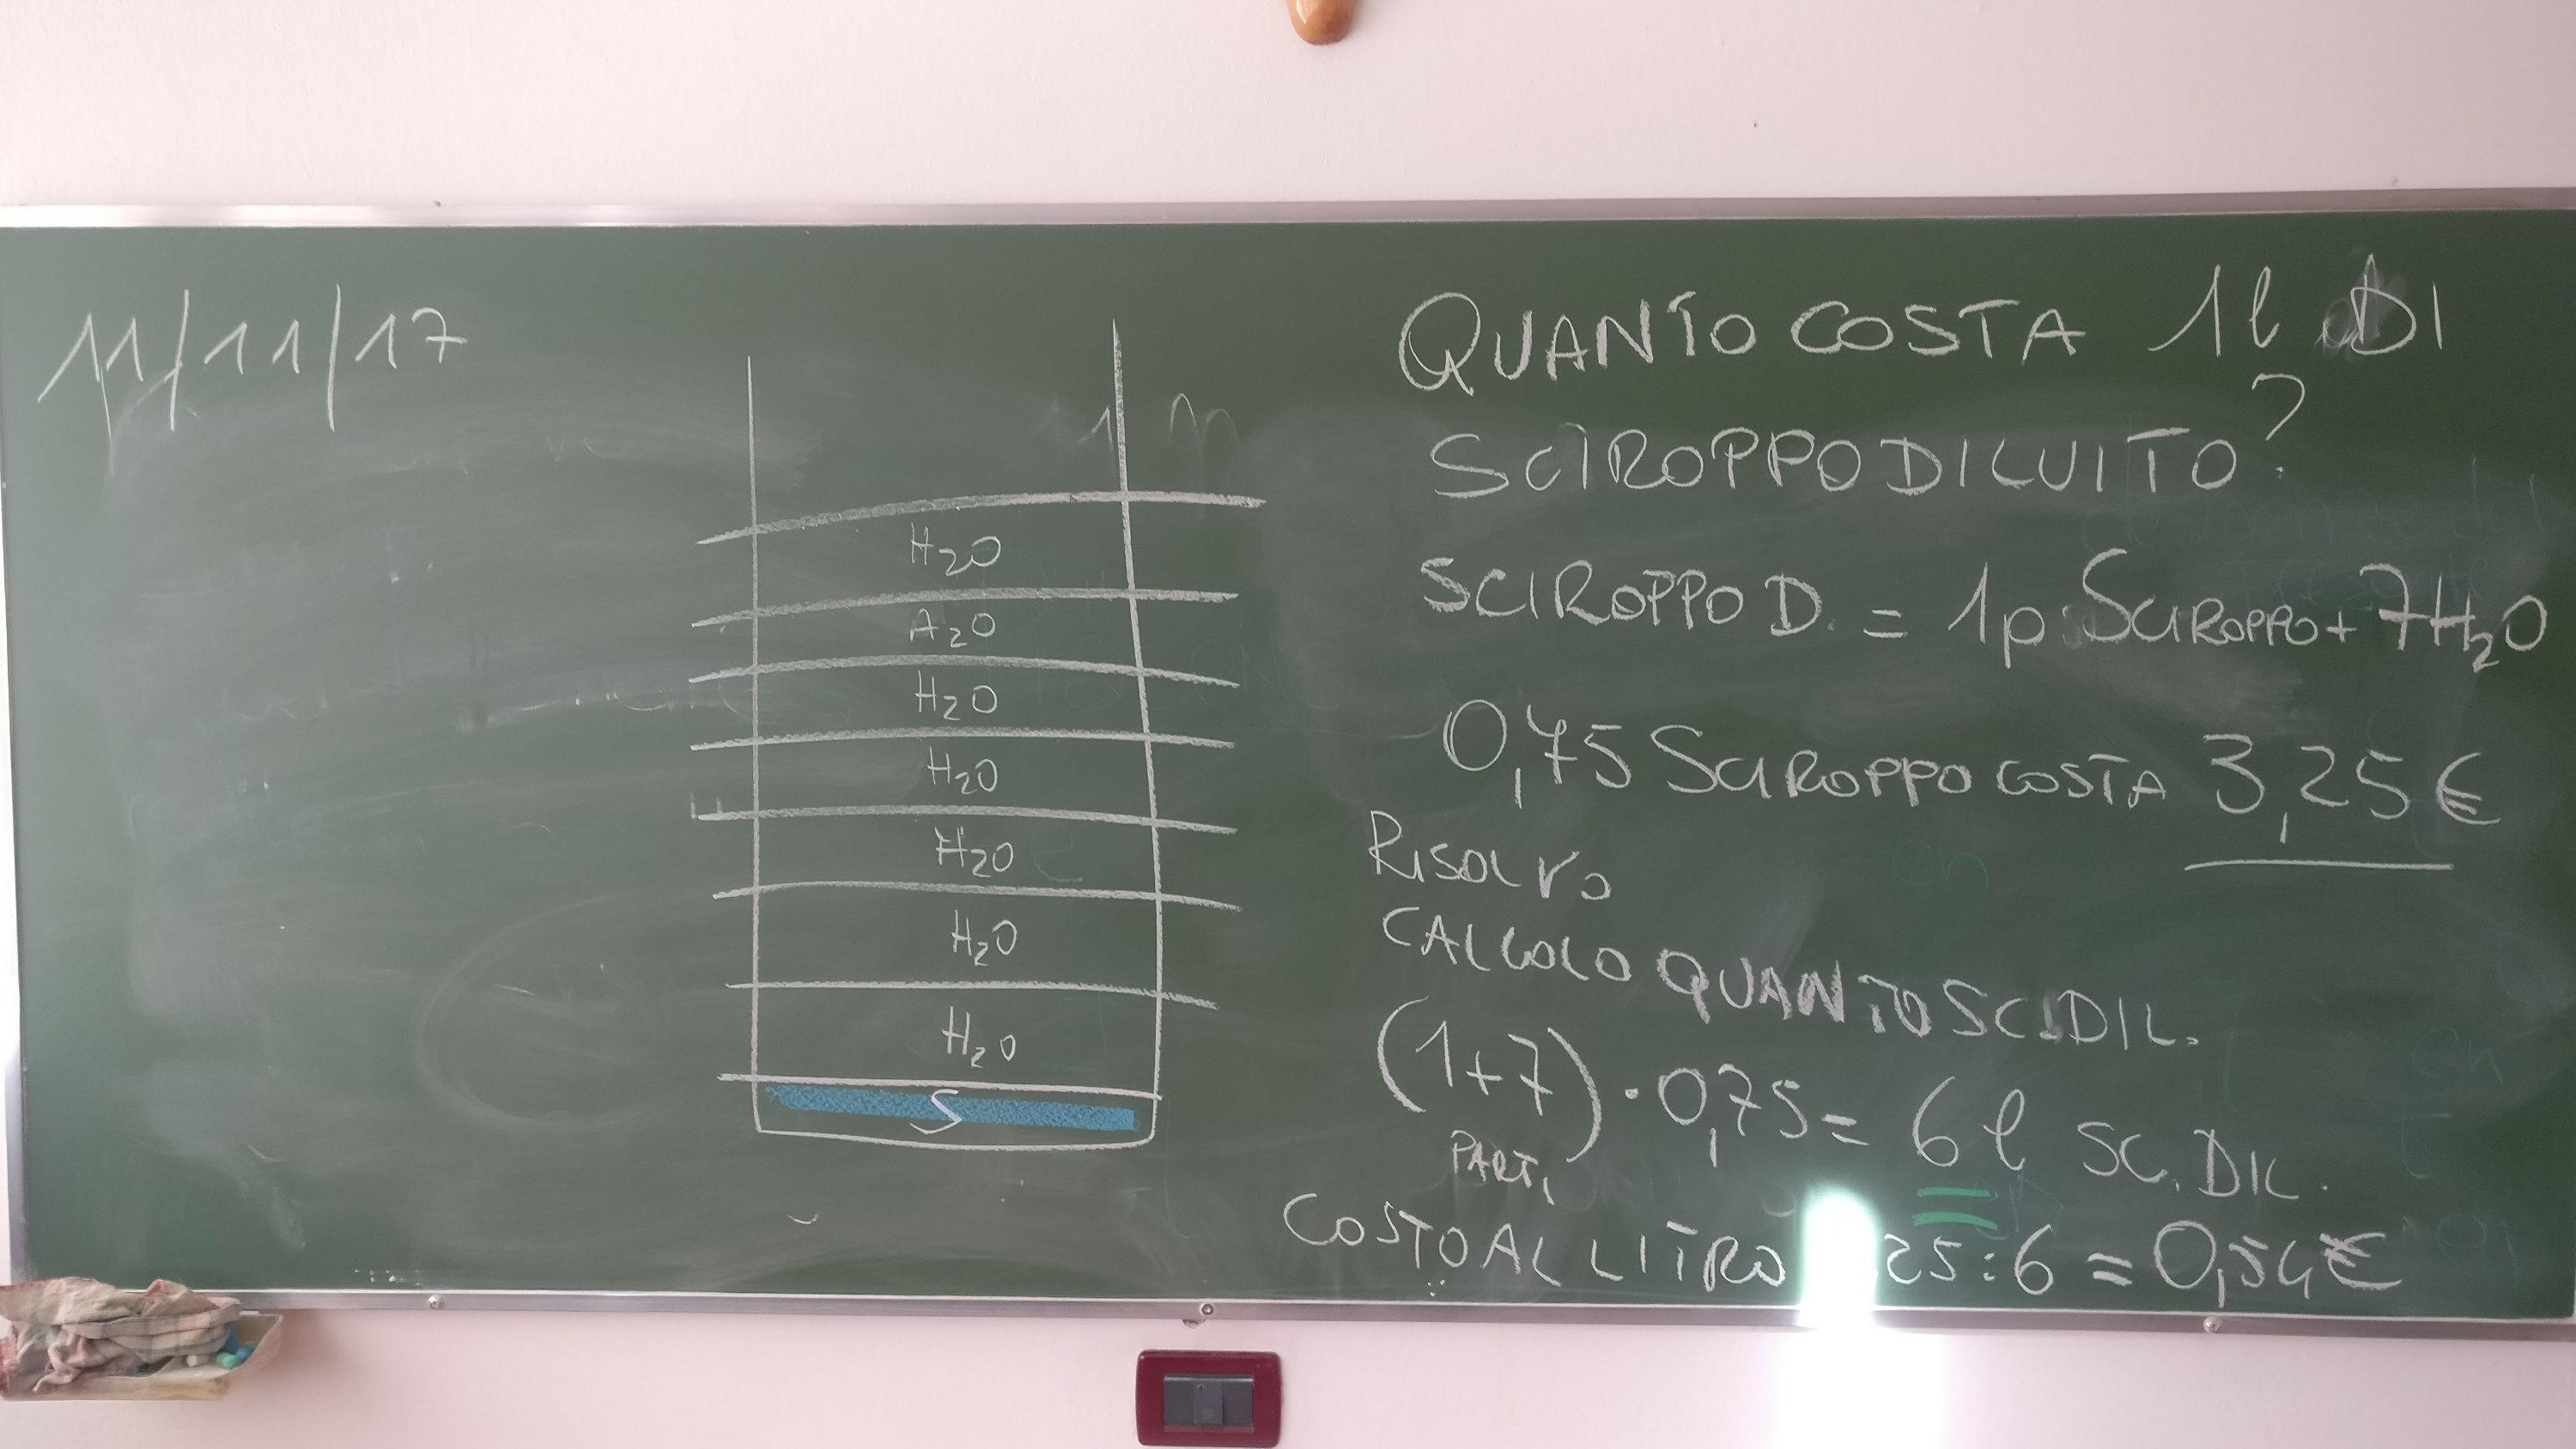 11/11/17
H2O
A2O
H2O
H2O
H2O
H2O
H2O
S
QUANTO COSTA 1l DI
SCIROPPO DILUITO?
SCIROPPO D. = 1p SCIROPPO + 7H2O
0,75 SCIROPPO COSTA 3,25 €
RISOLVO
CALCOLO QUANTO SC.DIL.
(1+7) · 0,75 = 6 l SC. DIL.
PARTI
COSTO AL LITRO 25:6 = 0,54 €